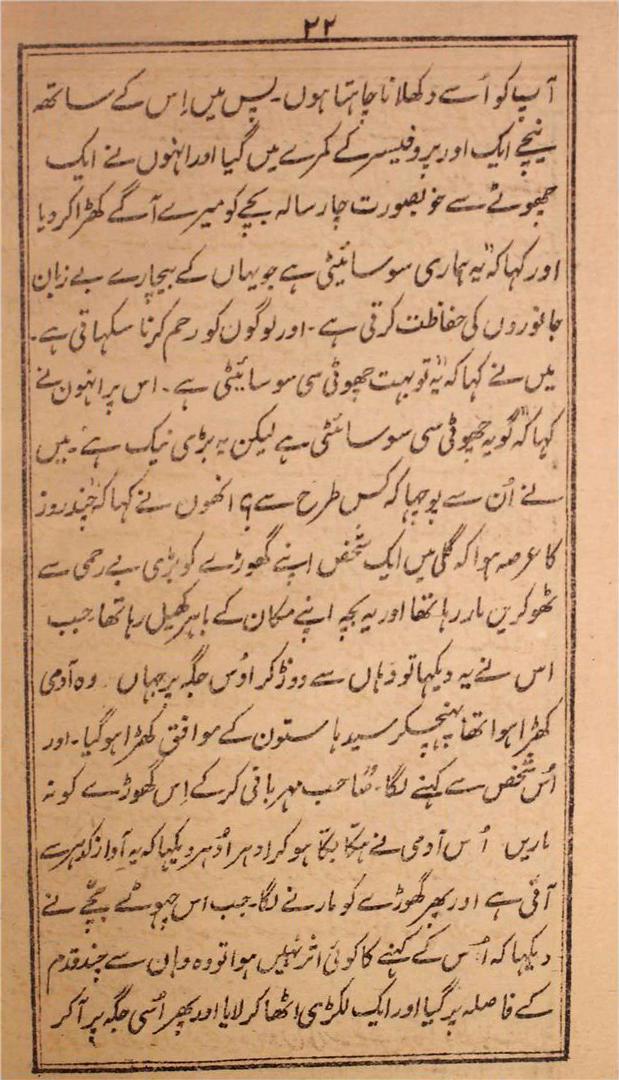 ۲۲
آپ کو اُسے دکھلانا چاہتا ہوں۔ پس میں اِس کے ساتھ
نیچے ایک اور پروفیسر کے کمرے میں گیا اور انہوں نے ایک
چھوٹے سے خوبصورت چار سالہ بچے کو میرے آگے کھڑا کر دیا
اور کہا کہ "یہ ہماری سوسائیٹی ہے جو یہاں کے بیچارے بے زبان
جانوروں کی حفاظت کرتی ہے۔ اور لوگوں کو رحم کرنا سکہاتی ہے۔
میں نے کہا کہ "یہ تو بہت چھوٹی سی سوسائیٹی ہے۔ اس پر انہوں نے
کہا کہ "گو یہ چھوٹی سی سوسائٹی ہے لیکن یہ بڑی نیک ہے"۔ میں
نے اُن سے پوچہا کہ کس طرح سے؟ انھوں نے کہا کہ "چند روز
کا عرصہ ہوا کہ گلی میں ایک شخص اپنے گھوڑے کو بڑی بے رحمی سے
ٹھوکریں مار رہا تھا اور یہ بچہ اپنے مکان کے باہر کھیل رہا تھا۔ جب
اس نے یہ دیکہا تو وہاں سے دوڑ کر اوُس جگہ پر جہاں وہ آدمی
کھڑا ہوا تھا پہنچکر سیدہا ستون کے موافق کھڑا ہو گیا۔ اور
اُس شخص سے کہنے لگا۔ "صاحب مہربانی کر کے اِس گھوڑے کو نہ
ماریں اُس آدمی نے ہکّا بکّا ہو کر ادہر اُدہر دیکہا کہ یہ آواز کدہر سے
آئی ہے اور پھر گھوڑے کو مارنے لگا۔ جب اس چہوٹے بچّے نے
دیکہا کہ اُس کے کہنے کا کوئی اثر نہیں ہوا تو وہ وہان سے چند قدم
کے فاصلہ پر گیا اور ایک لکڑی اٹھا کر لایا اور پھر اُسی جگہ پر آ کر